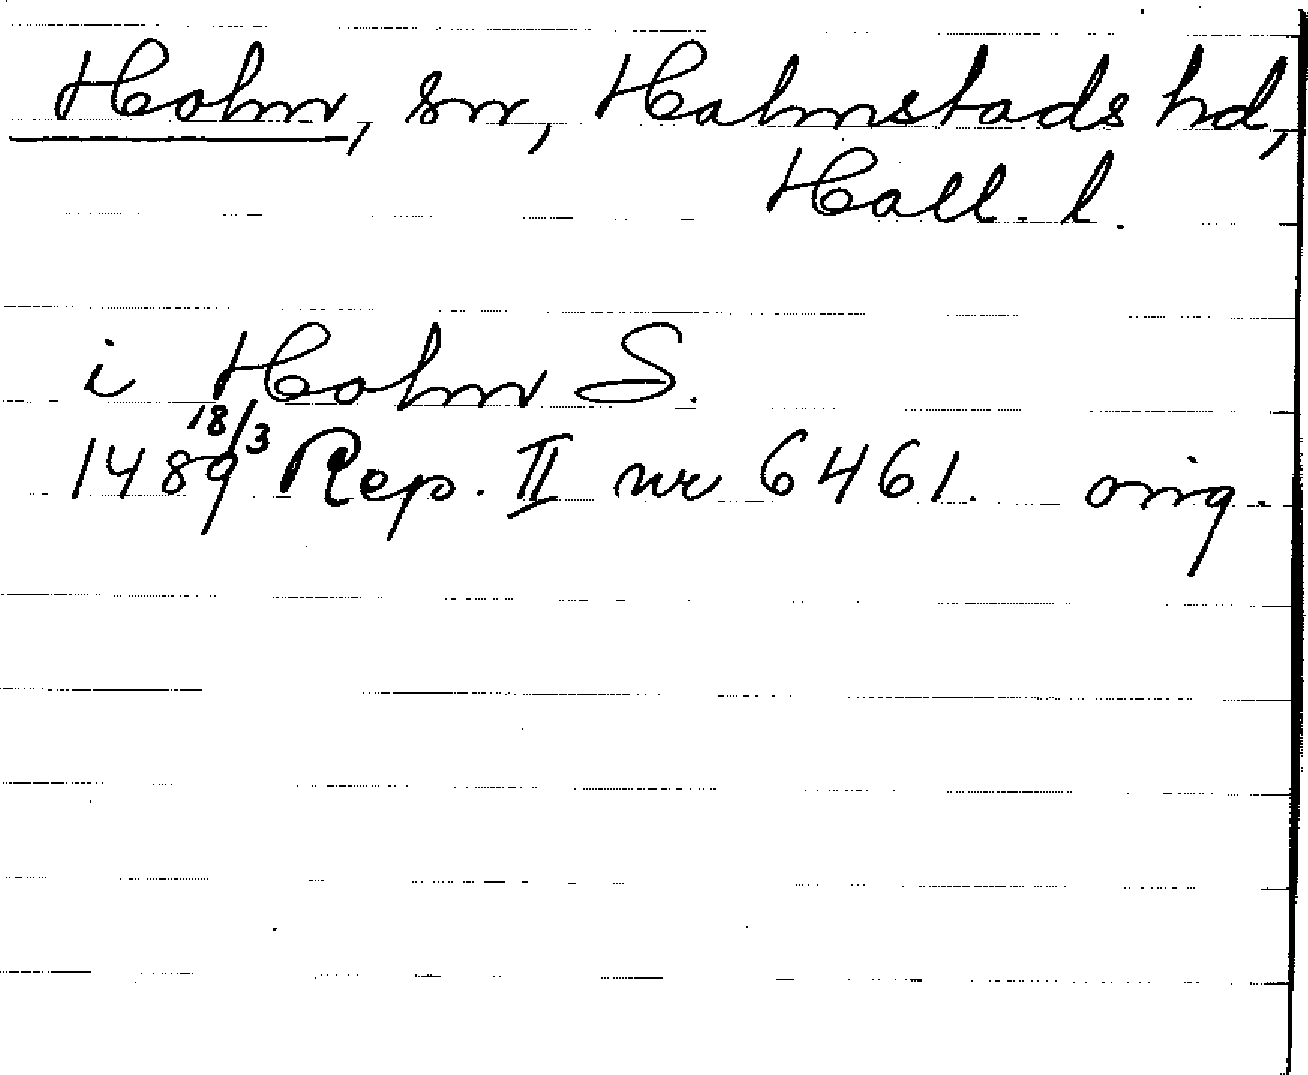 Holm, sn, Halmstads hd,
Hall. l.
i Holm S.
18/3
1489 Rep. II nr 6461. orig.